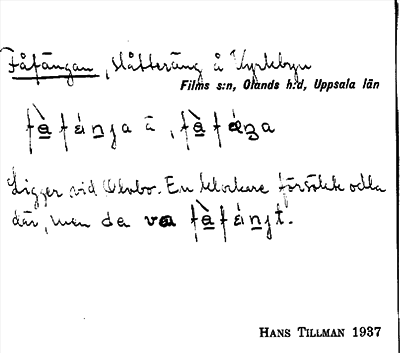 Fåfängan, slåtteräng å Kyrkbyn
Films s:n, Olands h:d, Uppsala län
fàfánga ä, fàfænga
Ligger vid Ovlobo. En klockare försökte odla
där, men de va fàfánt.
HANS TILLMAN 1937